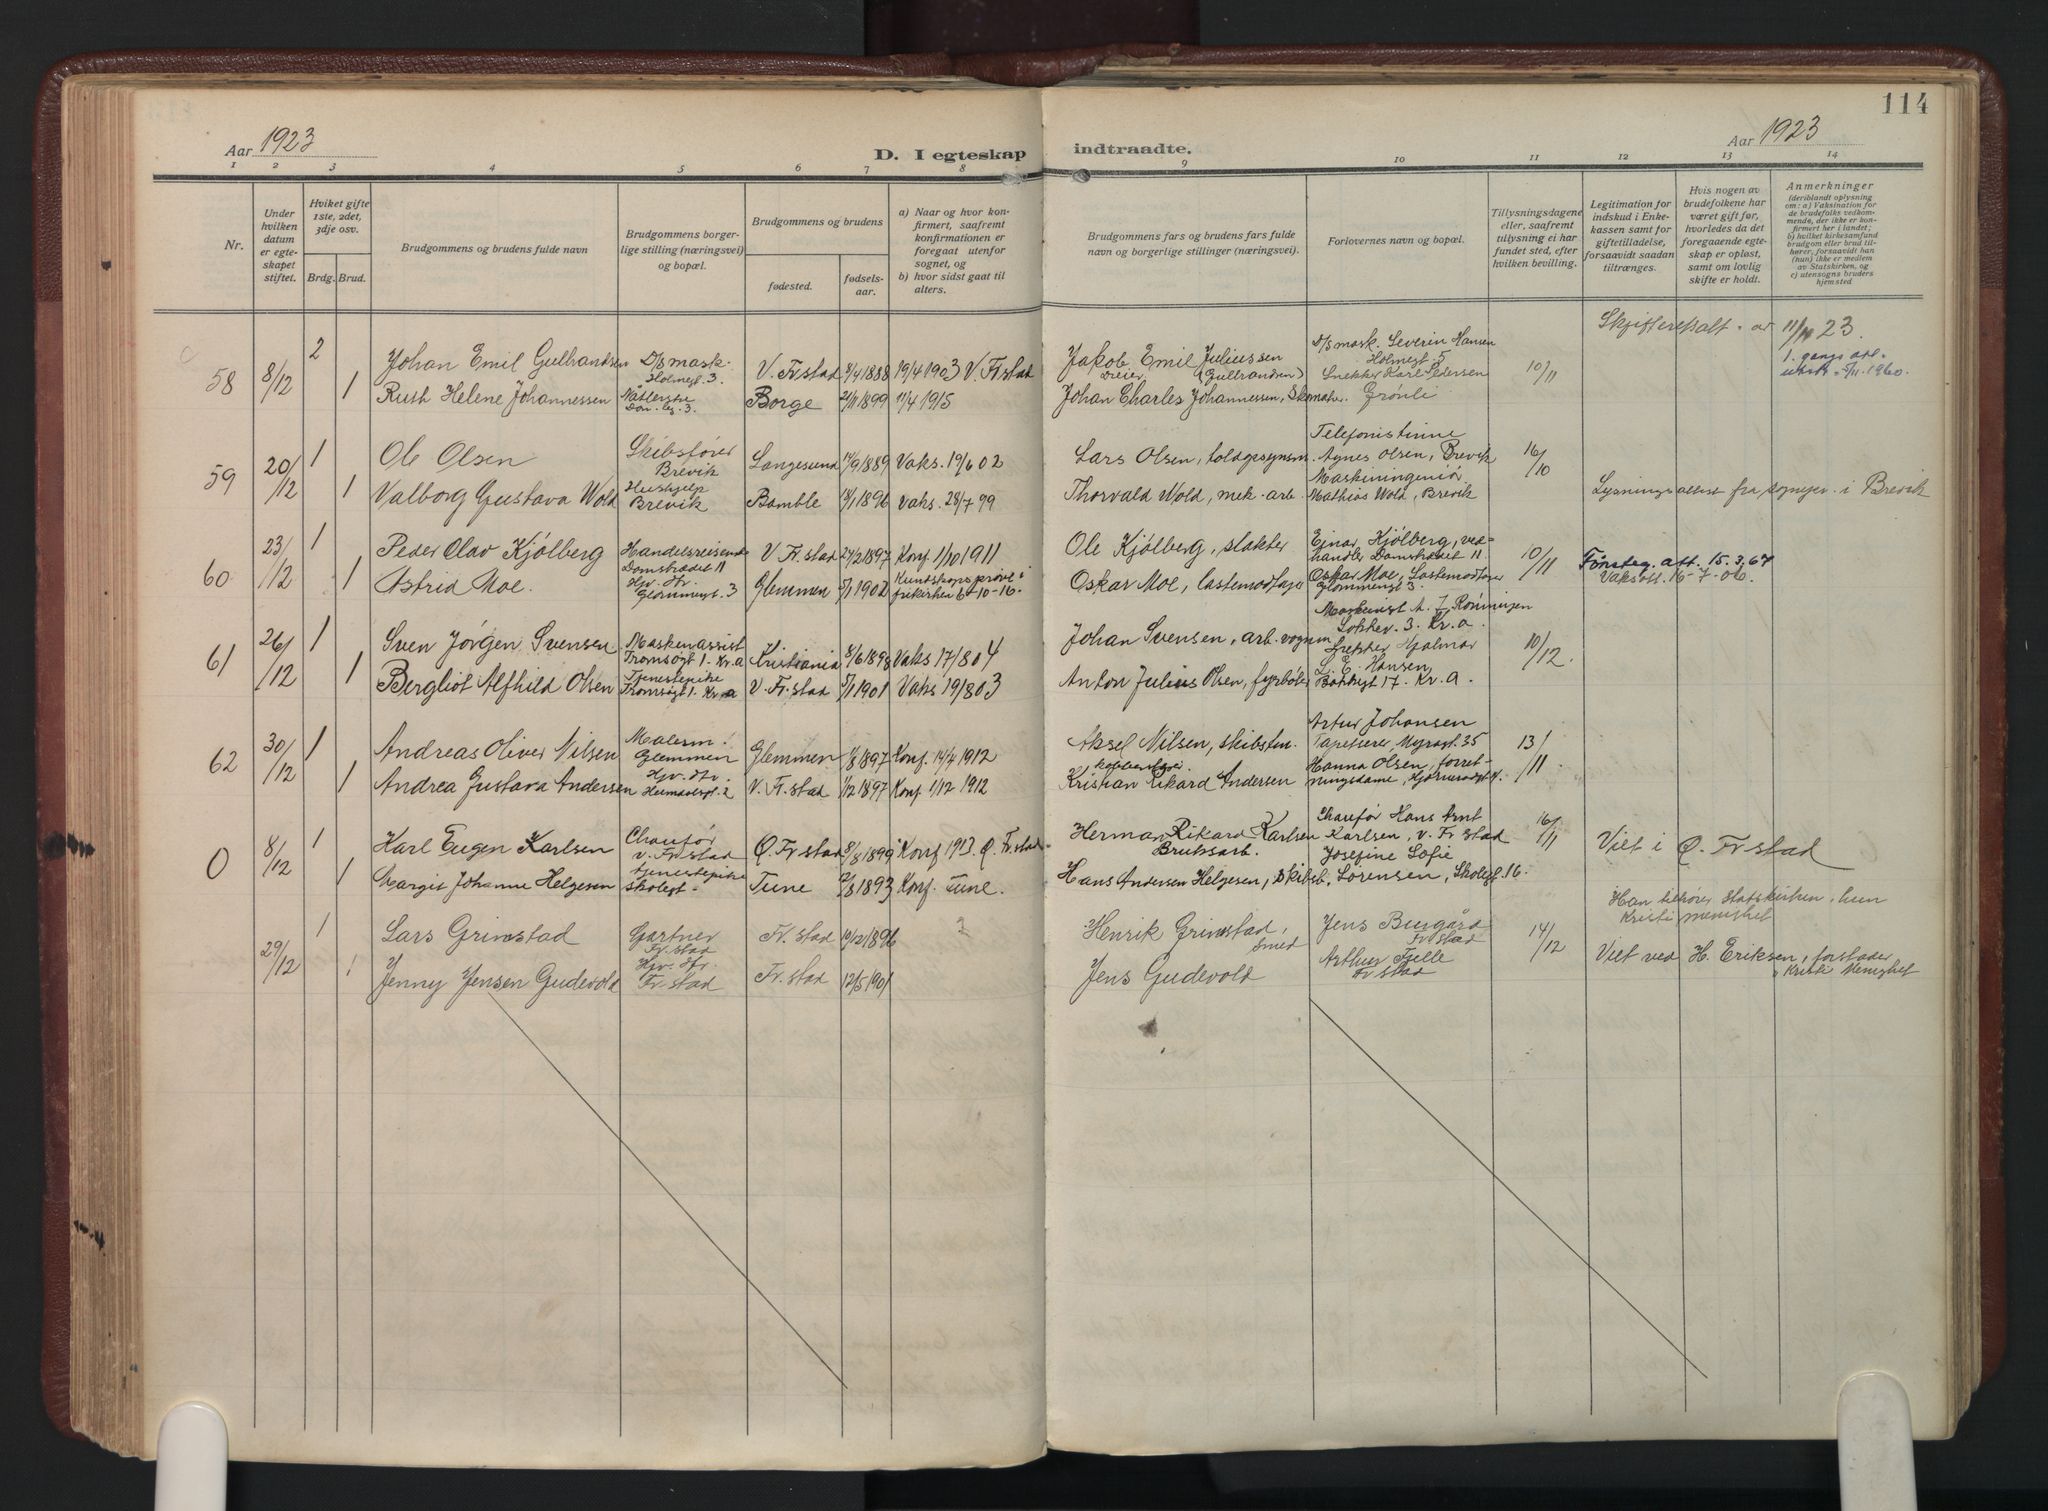 114
Aar 1923
Aar 1923
D. I egteskap
indtraadte.
1 2 3 4 5 6 7 8
9 10 11 12 13 14
Nr.
Under hvilken datum er egteskapet stiftet.
Hviket gifte 1ste, 2det, 3dje osv.
Brdg. Brud.
Brudgommens og brudens fulde navn
Brudgommens borgerlige stilling (næringsvei) og bopæl.
Brudgommens og brudens
fødested.
fødselsaar.
a) Naar og hvor konfirmert, saafremt konfirmationen er foregaat utenfor sognet, og
b) hvor sidst gaat til alters.
Brudgommens fars og brudens fars fulde navn og borgerlige stillinger (næringsvei).
Forlovernes navn og bopæl.
Tillysningsdagene eller, saafremt tillysning ei har fundet sted, efter hvilken bevilling.
Legitimation for indskud i Enkekassen samt for giftetilladelse, forsaavidt saadan tiltrænges.
Hvis nogen av brudefolkene har været gift før, hvorledes da det foregaaende egteskap er opløst, samt om lovlig skifte er holdt.
Anmerkninger (deriblandt oplysning om: a) Vaksination for de brudefolks vedkommende, der ikke er konfirmert her i landet; b) hvilket kirkesamfund brudgom eller brud tilhører, forsaavidt han (hun) ikke er medlem av Statskirken, og c) utensogns bruders hjemsted
58 8/12 2 Johan Emil Gulbrandsen D/S mask. Holmegt. 3. V. Fr.stad 8/4 1888 19/4 1903 V. Fr.stad
1 Ruth Helene Johannessen Borge 21/11 1899 11/4 1915
Jakob Emil Juliussen (Gulbrandsen)
Johan Charles Johannessen, Skomaker
D/S mask. Severin Hansen Holmegt. 5
Snekker Karl Pedersen Grønli
10/11
Skifteattest av 11/10 23.
1. gangs att. utst. 5/11.1960.
59 20/12 1 Ole Olsen Skibsfører Brevik Langesund 14/9 1889 Vaks. 19/6 02
1 Valborg Gustava Wold Hushjelp Brevik Bamble 18/1 1896 Vaks. 28/7 99
Lars Olsen, toldopsynsm.
Thorvald Wold, mek. arb.
Telefonistinne Agnes Olsen, Brevik
Maskiningeniør Mathias Wold, Brevik
16/10
Lysningsattest fra sognepr. i Brevik
60 23/12 1 Peder Olav Kjölberg Handelsreisende Damstrædet 11 V. Fr.stad 24/2 1897 Konf 1/10 1911
1 Astrid Moe. Hjv. dtr. Glommengt. 3 Glemmen 5/1 1902 Kundskapsprøve i frikirken 6-10-16.
Ole Kjölberg, slakter
Oskar Moe, lastemodtager
Einar Kjølberg, vedhandler Damstrædet 11
Oskar Moe, Lastemodtager Glommengt 3.
10/11
Tönsteg. att. 15.3.67
Vaksatt. 16-7-06.
61 26/12 1 Sven Jörgen Svensen Maskinassist Tromsøgt 1. Kr.a Kristiania 8/6 1898 Vaks 17/8 04
1 Bergliot Alfhild Olsen Tjenestepike Tromsøgt 1. Kr.a V. Fr.stad 5/1 1901 Vaks 19/8 03
Johan Svensen, arb. vognm
Anton Julius Olsen, fyrbøter
Maskinist A. J. Rønningen Løkkev. 3. Kr.a.
Hjalmar L. E. Hansen Bakkegt 17. Kr.a.
10/12.
62 30/12 1 Andreas Oliver Nilsen Malerm. Glemmen Glemmen 1/8 1897 Konf. 14/4 1912
1 Andrea Gustava Andersen Hjv. dtr. Heimdalsgt. 2 V. Fr.stad 1/12 1897 Konf 1/12 1912
Aksel Nilsen, skibstm.
Kristian Rikard Andersen
Artur Johansen Tapetserer Myragt. 35
Hanna Olsen, forretningsdame,
13/11
0 8/12 1 Karl Eugen Karlsen Chaufør V. Fr.stad Ø. Fr.stad 8/8 1899 Konf 1913. Ø. Fr.stad
1 Margit Johanne Helgesen Tjenestepike Skolegt. Tune 2/3 1893 Konf. Tune.
Herman Rikard Karlsen Bruksarb.
Hans Andersen Helgesen, Skibsb.
Chaufør Hans Arnt Karlsen, V. Fr.stad
Josefine Sofie Sørensen, Skolegt. 16.
16/11
Viet i Ø. Fr.stad
29/12 1 Lars Grimstad Gartner Fr.stad Fr.stad 10/12 1896
1 Jenny Jensen Gudevold Hjv. dtr. Fr.stad Fr.stad 12/5 1901
Henrik Grimstad, Smed
Jens Gudevold
Jens Burgård Fr.stad
Arthur Fjelle Fr.stad
14/12
Han tilhører Statskirken, hun Kristi menighet
Viet ved H. Eriksen, forstader i Kristi Menighet